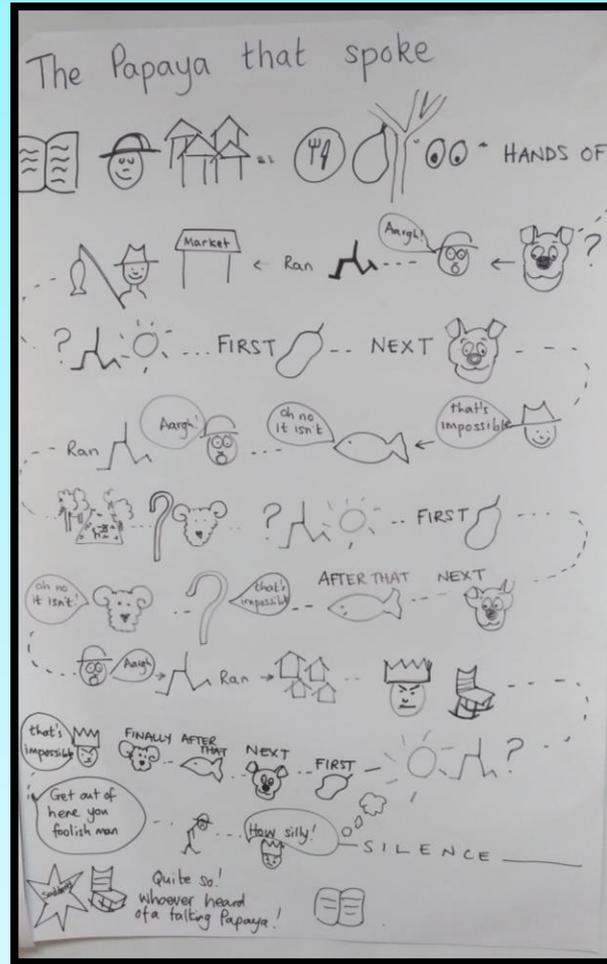 The Papaya that spoke
HANDS OF
Aargh!
?
Market
← Ran
? ... FIRST -- NEXT
Ran
Aargh!
oh no
it isn't
that's
impossible
? ? .. FIRST
oh no
it isn't!
that's
impossible
AFTER THAT
NEXT
Aargh
Ran
that's
impossible
FINALLY
AFTER
THAT
NEXT
FIRST
?
Get out of
here you
foolish man
How silly!
SILENCE
Suddenly
Quite so!
Whoever heard
of a talking Papaya!